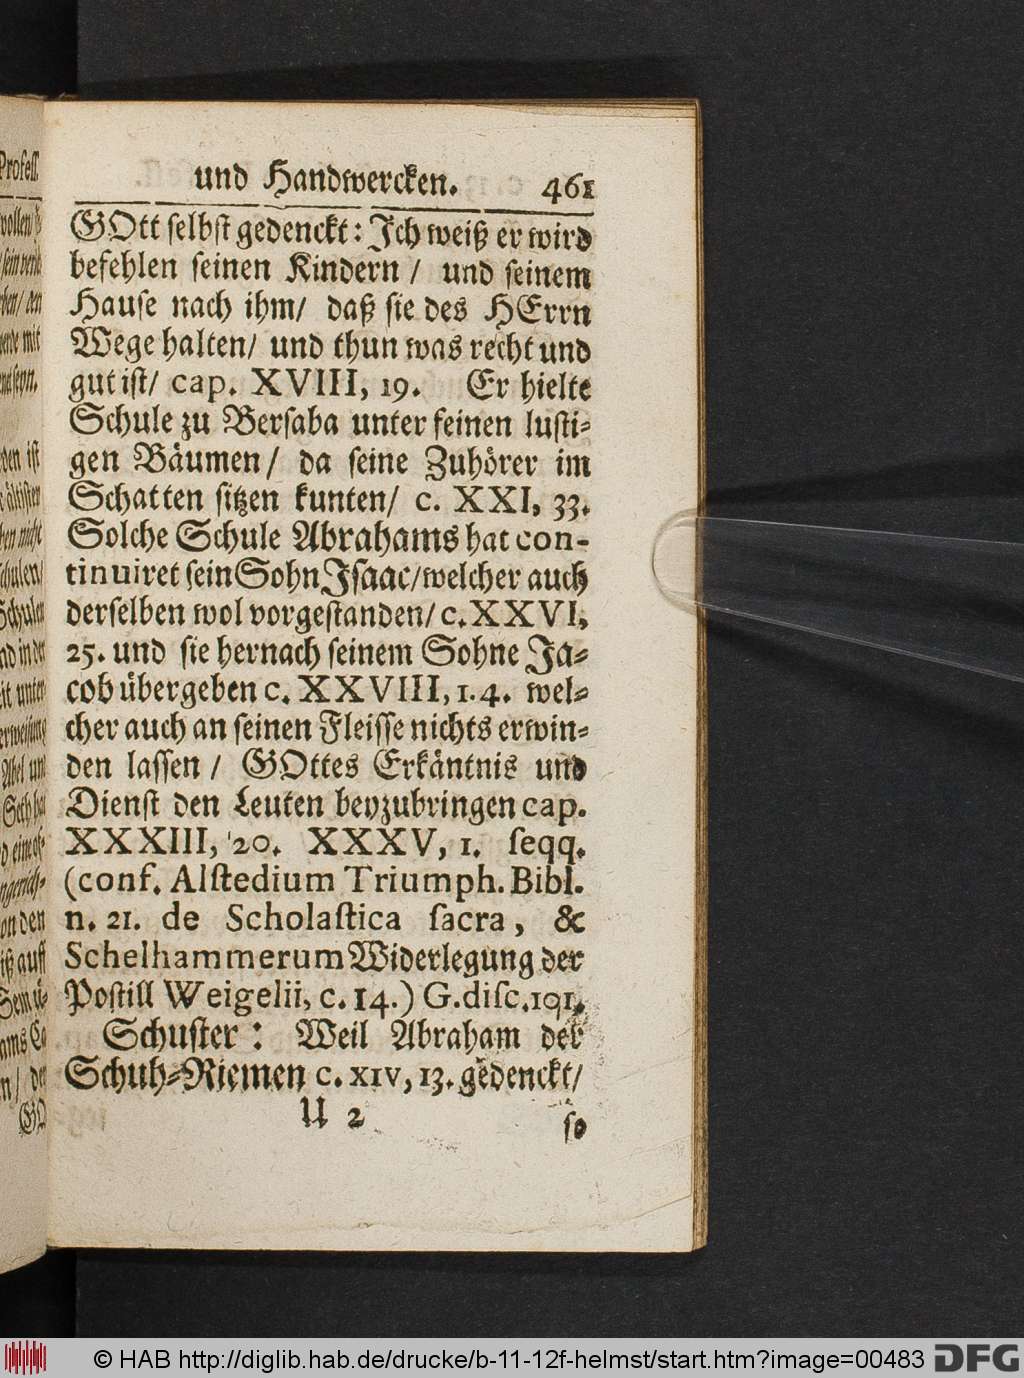 und Handwercken. 461
GOtt selbst gedenckt: Jch weiß er wird
befehlen seinen Kindern / und seinem
Hause nach ihm/ daß sie des HErrn
Wege halten/ und thun was recht und
gut ist/ cap. XVIII, 19. Er hielte
Schule zu Bersaba unter feinen lusti-
gen Bäumen/ da seine Zuhörer im
Schatten sitzen kunten/ c. XXI, 33.
Solche Schule Abrahams hat con-
tinuiret sein Sohn Jsaac/ welcher auch
derselben wol vorgestanden/ c. XXVI,
25. und sie hernach seinem Sohne Ja-
cob übergeben c. XXVIII, 1. 4. wel-
cher auch an seinen Fleisse nichts erwin-
den lassen / GOttes Erkäntnis und
Dienst den Leuten beyzubringen cap.
XXXIII, 20. XXXV, 1. seqq.
(conf. Alstedium Triumph. Bibl.
n. 21. de Scholastica sacra, &
Schelhammerum Widerlegung der
Postill Weigelii, c. 14.) G. disc. 191.
Schuster: Weil Abraham der
Schuh-Riemen c. XIV, 13. gedenckt/
U 2 so
© HAB http://diglib.hab.de/drucke/b-11-12f-helmst/start.htm?image=00483 DFG